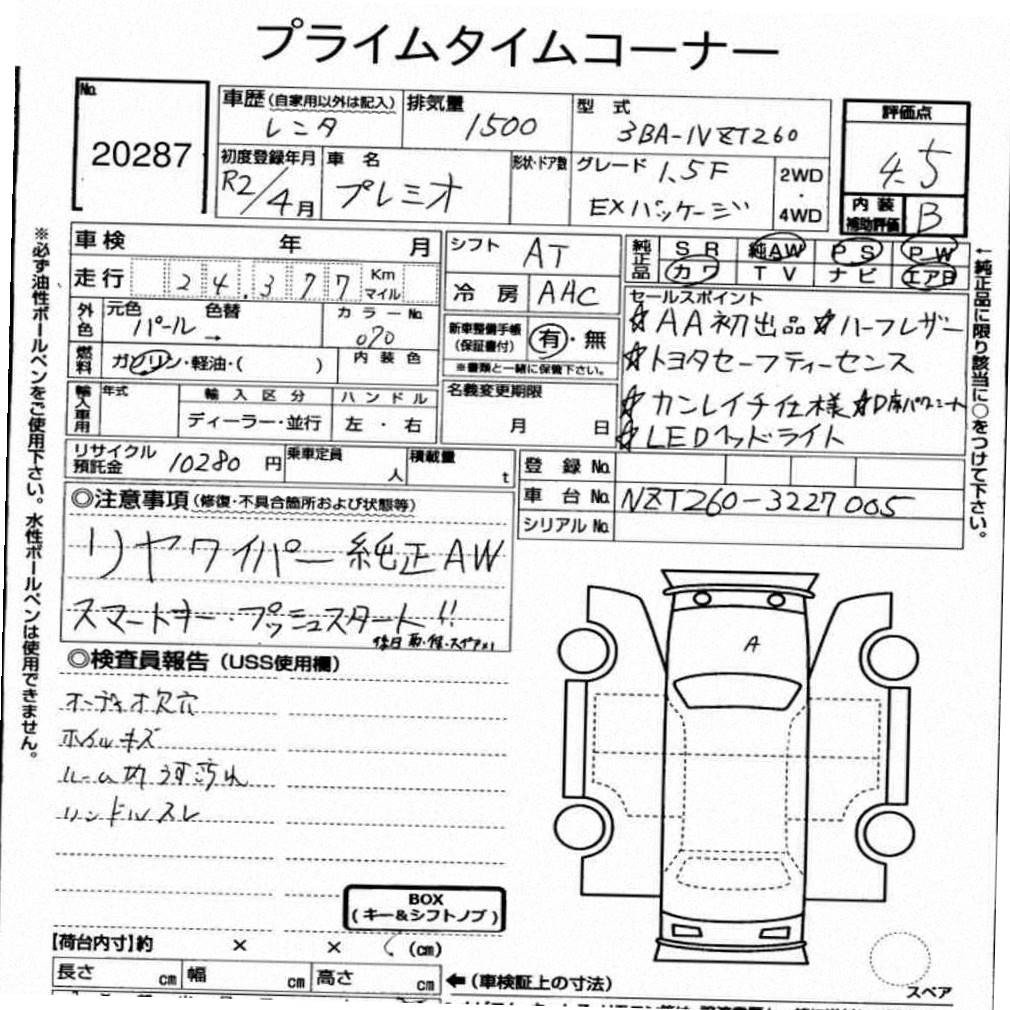 プライムタイムコーナー
No.
20287
車歴(自家用以外は記入)
レンタ
排気量
1500
型式
3BA-NZT260
評価点
4.5
初度登録年月
R2/4月
車名
プレミオ
形状・ドア数
グレード 1.5F
EXパッケージ
2WD
・
4WD
内装
補助評価
B
※必ず油性ボールペンをご使用下さい。水性ボールペンは使用できません。
車検 年 月
走行 24,377 Km
マイル
外色
元色 色替
パール →
カラーNo.
070
燃料
ガソリン・軽油・( )
内装色
輸入車用
年式
輸入区分
ディーラー・並行
ハンドル
左・右
シフト AT
冷房 AAC
新車整備手帳
(保証書付)
有・無
※書類と一緒に保管下さい。
名義変更期限
月 日
純正品
SR 純AW PS PW
カワ TV ナビ エアB
←純正品に限り該当に○をつけて下さい。
セールスポイント
☆AA初出品☆ハーフレザー
☆トヨタセーフティーセンス
☆カンレイチ仕様☆D席パワーシート
☆LEDヘッドライト
リサイクル
預託金
10280円
乗車定員
人
積載量
t
登録No.
車台No. NZT260-3227005
シリアルNo.
◎注意事項(修復・不具合箇所および状態等)
リヤワイパー 純正AW
スマートキー・プッシュスタート!!
後日 取・保・スペア×1
◎検査員報告(USS使用欄)
オーディオ欠穴
ホイルキズ
ルーム内うす汚れ
ハンドルスレ
A
BOX
(キー&シフトノブ)
【荷台内寸】約 × × (cm)
長さ cm 幅 cm 高さ cm ←(車検証上の寸法)
スペア